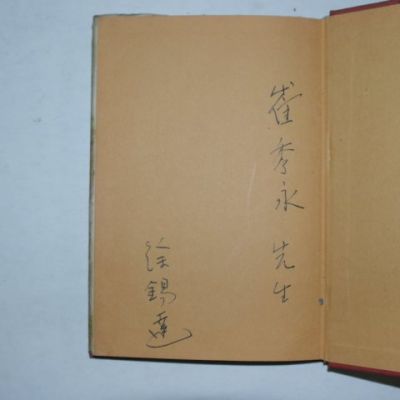 崔秀永 先生
徐錫達